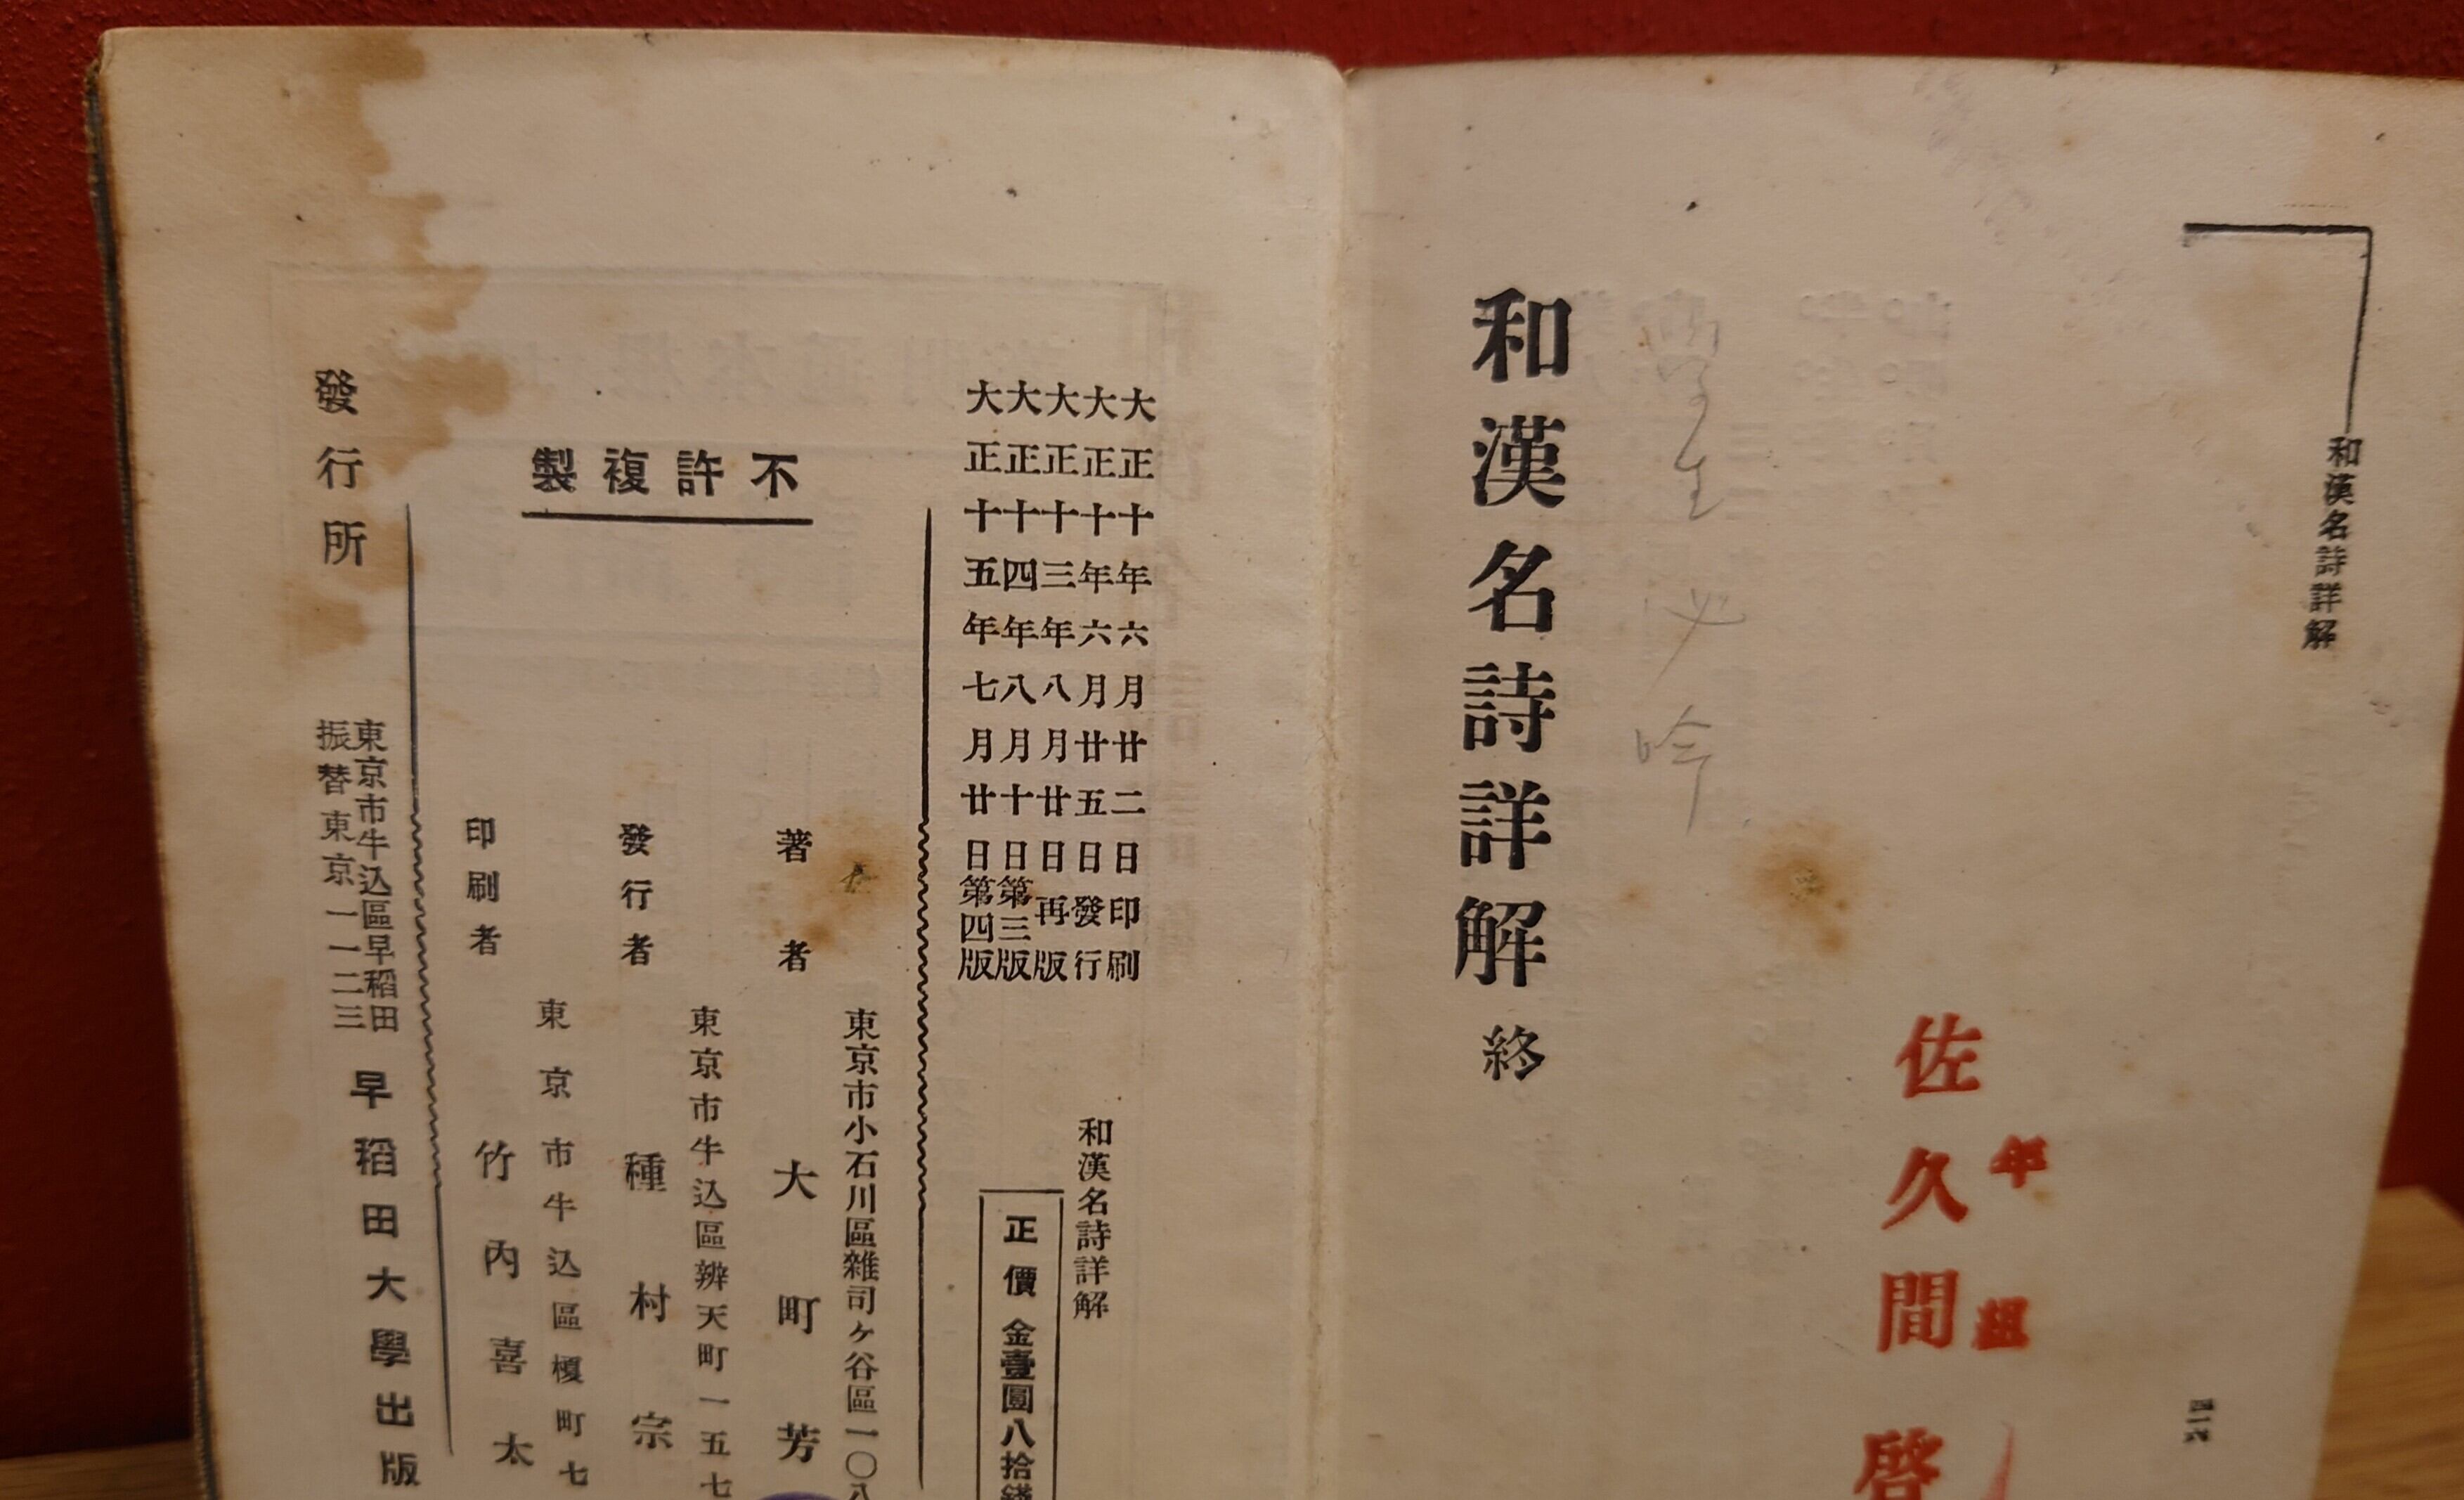 和漢名詩詳解
年 組
佐久間啓
學生 必吟
和漢名詩詳解 終
大正十年六月廿二日印刷
大正十年六月廿五日發行
大正十三年八月廿日再版
大正十四年八月十日第三版
大正十五年七月廿日第四版
和漢名詩詳解
正價 金壹圓八拾錢
不許複製
東京市小石川區雜司ケ谷區一〇八
著者 大町芳
東京市牛込區辨天町一五七
發行者 種村宗
東京市牛込區榎町七
印刷者 竹內喜太
發行所
東京市牛込區早稲田
振替東京一一二三
早稲田大學出版